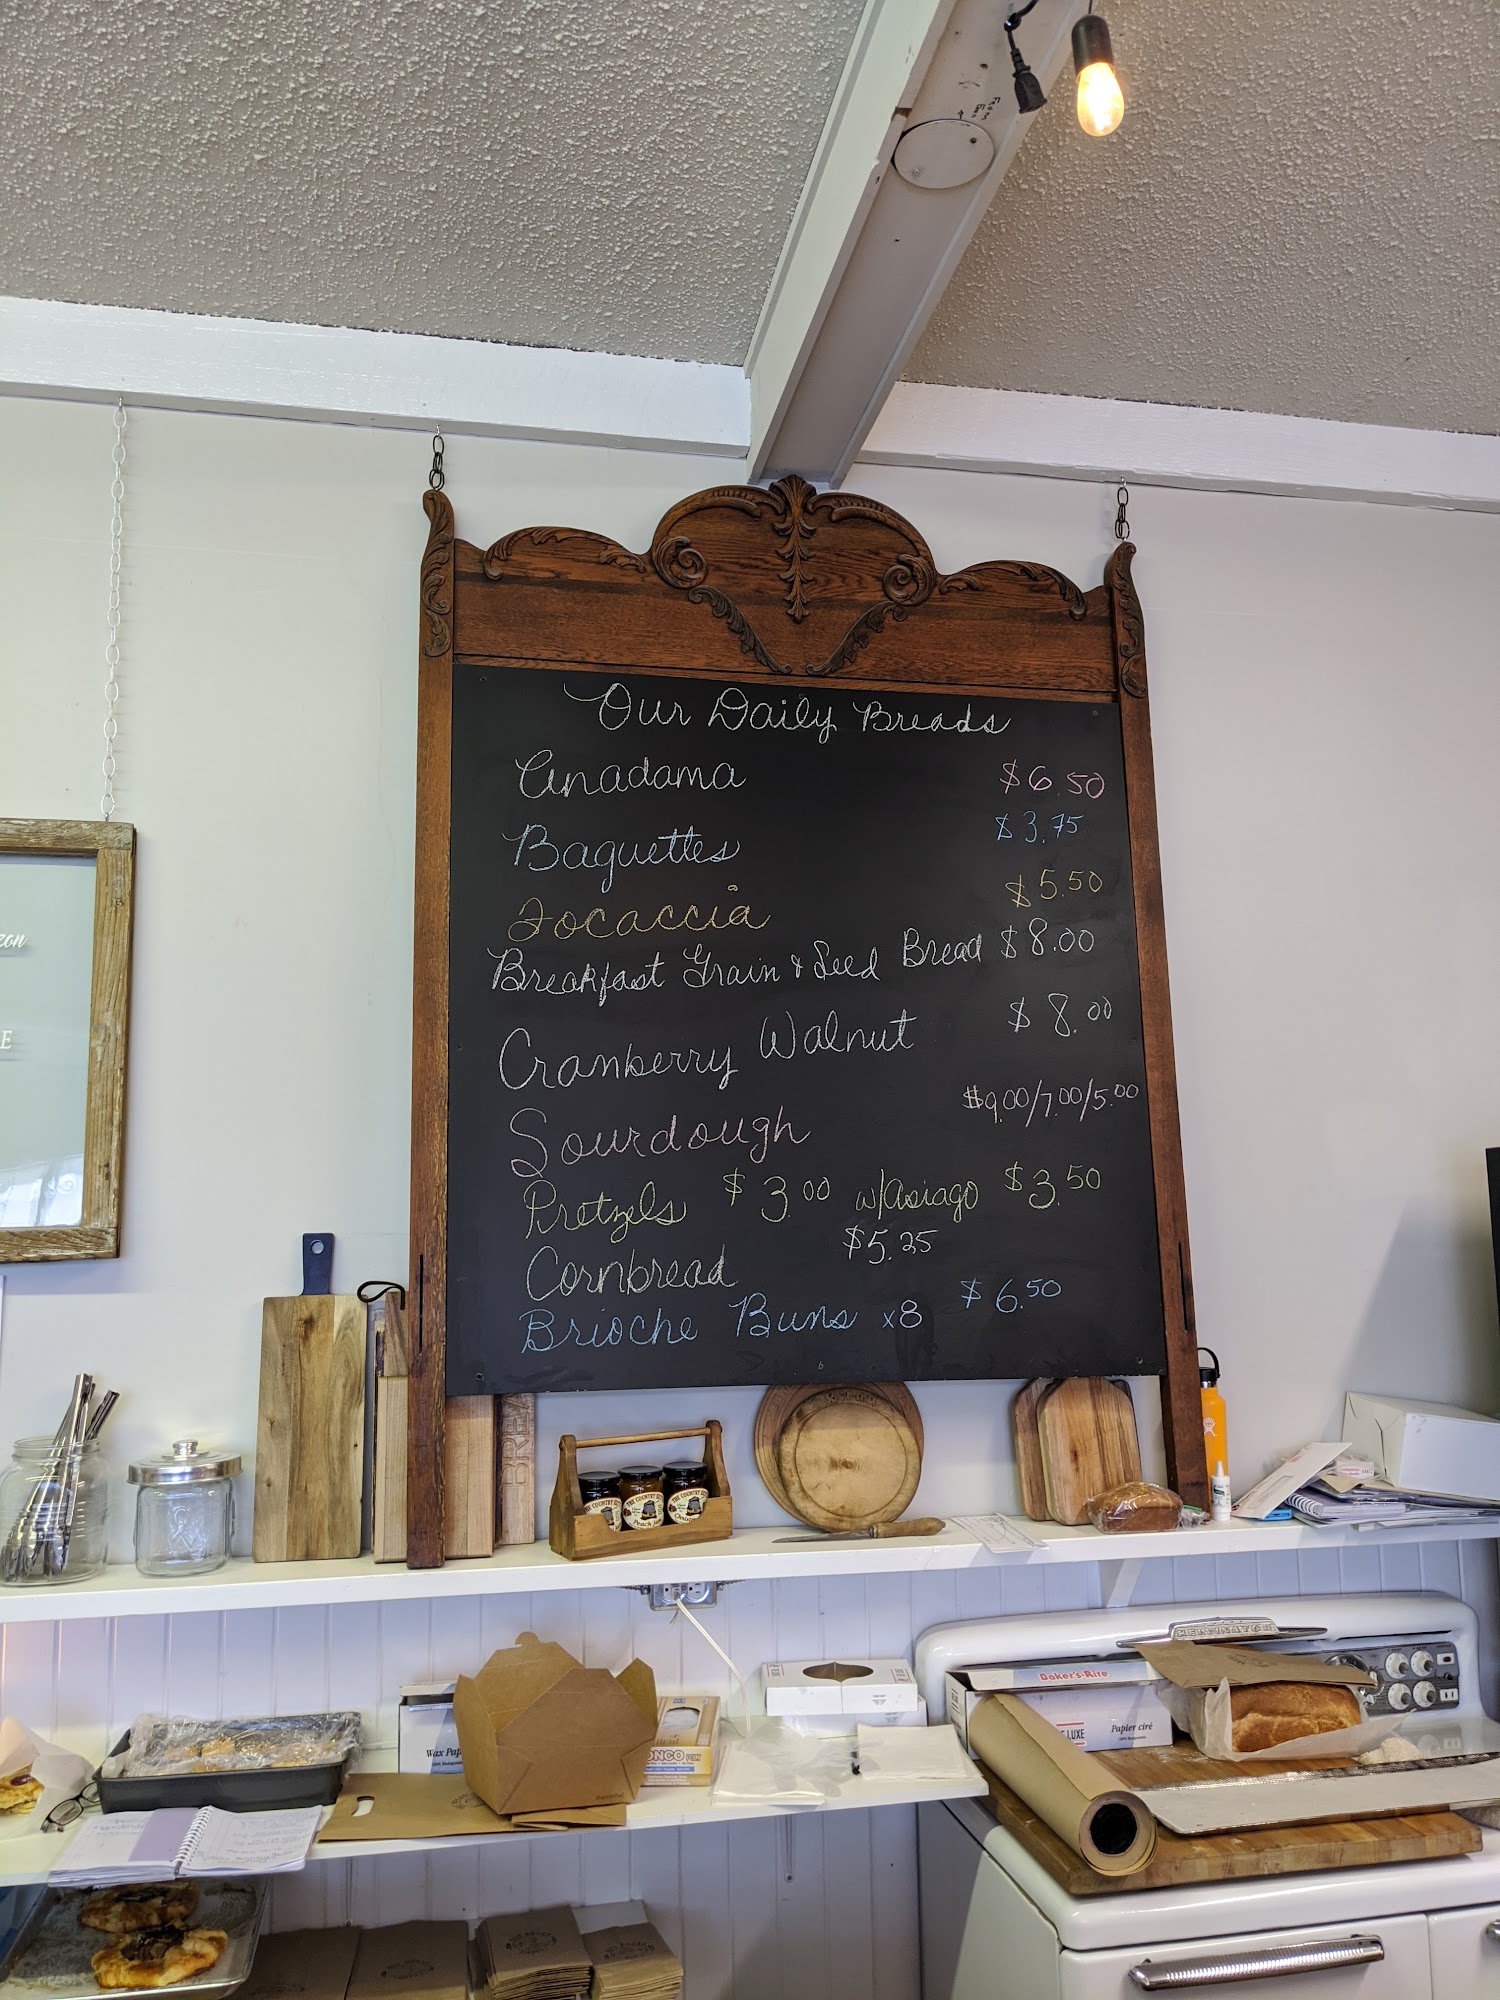 From
Our Daily Breads
Anadama $6.50
Baguettes $3.75
Focaccia $5.50
Breakfast Grain & Seed Bread $8.00
Cranberry Walnut $8.00
Sourdough $9.00/7.00/5.00
Pretzels $3.00 w/Asiago $3.50
Cornbread $5.25
Brioche Buns x8 $6.50
zon
E
BREA
THE COUNTRY
Peach
KENMORE
Baker's-Rite
LUXE
Papier ciré
Wax Pap